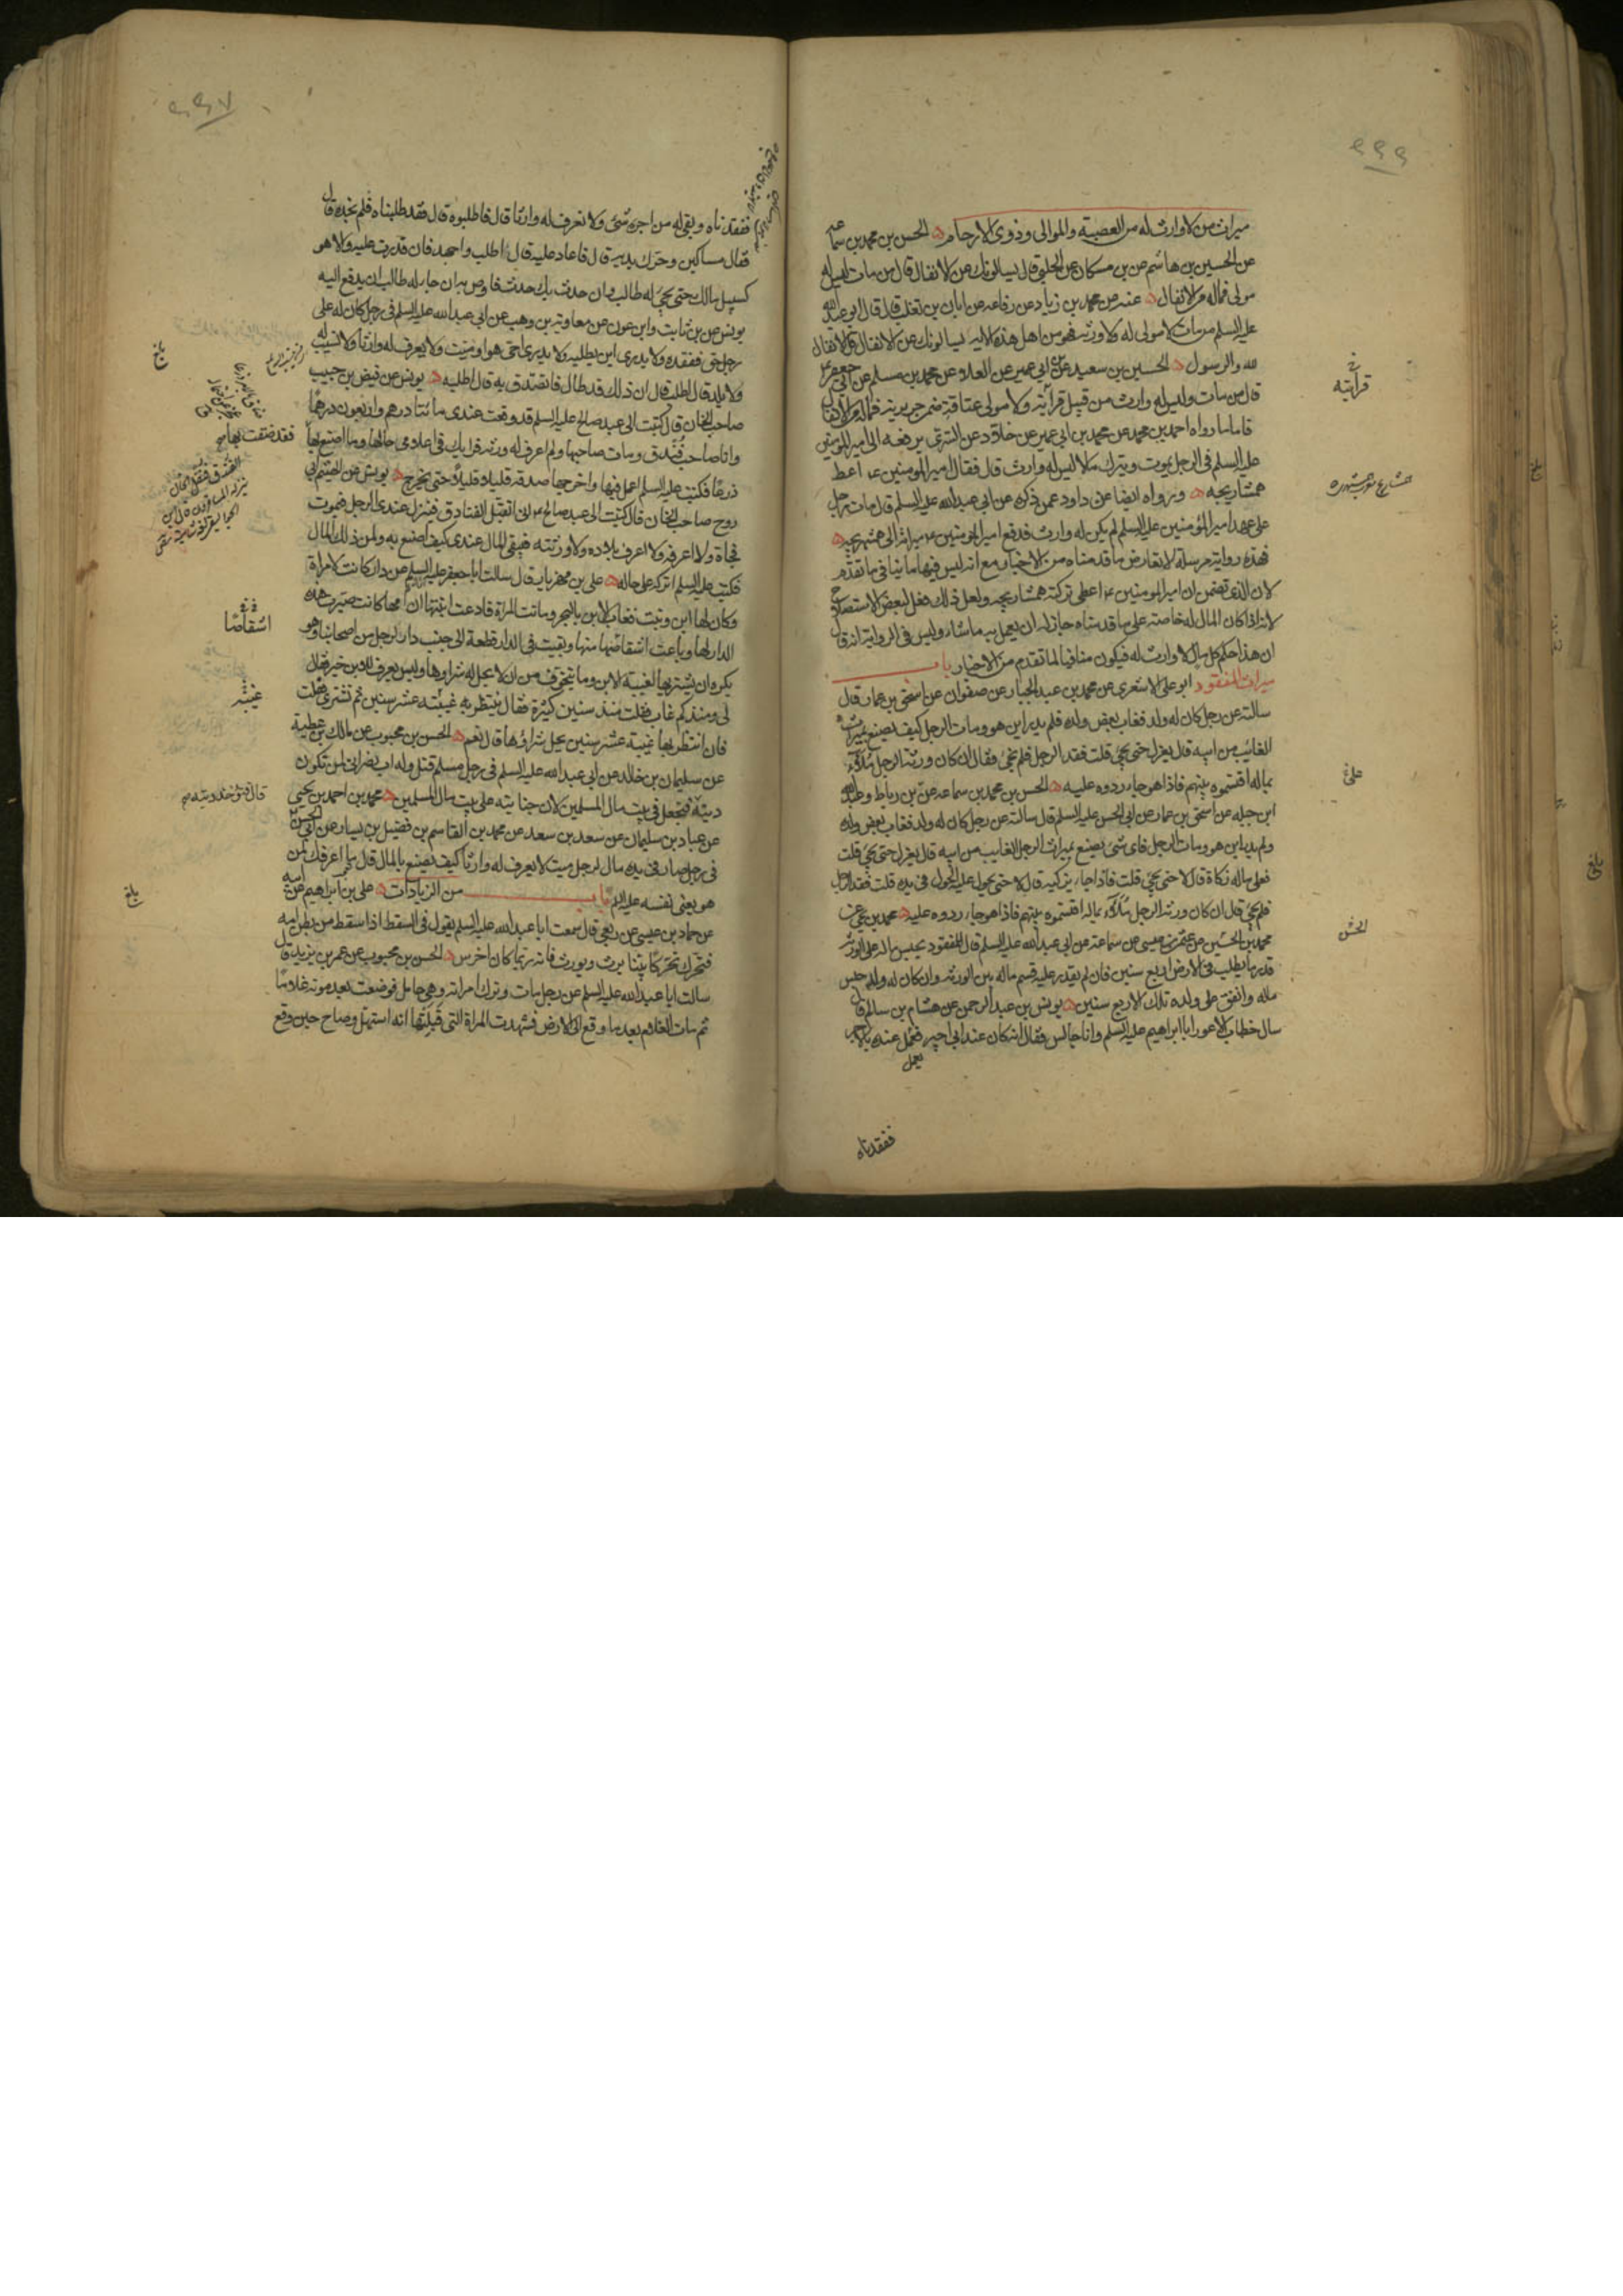 ۶۶۶
ميراث من لا وارث له من العصبة والموالى وذوى الارحام الحسن بن محمد بن سماعه
عن الحسين بن هاشم عن بن مسكان عن الحلبى قال يسالونك عن الانفال قال من مات ليس له
مولى فماله من الانفال عنه عن محمد بن زياد عن رفاعه عن ابان بن تغلب قال قال ابو عبدالله
عليه السلم من مات لا مولى له ولا ورثه فهو من اهل هذه الايه يسالونك عن الانفال قل الانفال
لله والرسول الحسين بن سعيد عن ابى عمير عن العلا عن محمد بن مسلم عن ابى جعفر
قال من مات وليس له وارث من قبل قرابته ولا مولى عتاقة ضمن جريرته فماله من الانفال
فاما ما رواه احمد بن محمد عن محمد بن ابى عمير عن خلاد عن السرى يرفعه الى امير المومنين
عليه السلم فى الرجل يموت ويترك مالا ليس له وارث قال فقال امير المومنين ع اعط
همشاريجه وروا ه ايضا عن داود عمن ذكره عن ابى عبدالله عليه السلم قال مات رجل
على عهد امير المؤمنين عليه السلم لم يكن له وارث فدفع امير المؤمنين ع ميراثه الى همشهريجه
فهذه رواية مرسلة لا تعارض ما قدمناه من الاخبار مع انه ليس فيها ما ينافى ما تقدم
لان الذى تضمن ان امير المومنين ع اعطى تركته همشاريجه ولعل ذلك فعل لبعض الاستصلاح
لانه اذا كان المال له خاصة على ما قدمناه جاز له ان يعمل به ما شاء وليس فى الرواية انه قال
ان هذا حكم كل مال لا وارث له فيكون منافيا لما تقدم من الاخبار باب
ميراث المفقود ابو على الاشعرى عن محمد بن عبد الجبار عن صفوان عن اسحق بن عمار قال
سالته عن رجل كان له ولد فغاب بعض ولده فلم يدر اين هو ومات الرجل كيف يصنع بميراث
الغائب من ابيه قال يعزل حتى يجئ قلت فقد الرجل فلم يجئ فقال ان كان ورثة الرجل ملآء
بماله اقتسموه بينهم فاذا هو جاء ردوه عليه الحسن بن محمد بن سماعه عن بن رباط وعبدالله
ابن جبله عن اسحق بن عمار عن ابى الحسن عليه السلم قال سالته عن رجل كان له ولد فغاب بعض ولده
ولم يدر اين هو ومات الرجل فاى شئ يصنع بميراث الرجل الغايب من ابيه قال يعزل حتى يجئ قلت
فعلى ماله زكاة قال لا حتى يجئ قلت فاذا جاء يزكيه قال لا حتى يحول عليه الحول فى يده قلت فقد الرجل
فلم يجئ قال ان كان ورثه الرجل ملآء بماله اقتسموه بينهم فاذا هو جاء ردوه عليه محمد بن يحيى عن
محمد بن الحسين عن عثمن بن عيسى عن سماعه عن ابى عبدالله عليه السلم قال المفقود يحبس ماله على الورثه
قدر ما يطلب فى الارض اربع سنين فان لم يقدر عليه قسم ماله بين الورثه وان كان له ولد حبس
ماله وانفق على ولده تلك الاربع سنين يونس بن عبد الرحمن عن هشام بن سالم قال
سال خطاب الاعور ابا ابراهيم عليه السلم وانا جالس فقال انه كان عند ابى اجير فعمل عنده بالاجر
يعمل
ففقدناه
قرابته
على
الحسن
۶۶۷
ففقدناه وبقى له من اجره شئ ولا نعرف له وارثا قال فاطلبوه قال فقد طلبناه فلم نجده قال
فقال مساكين وحرك يديه قال فاعاد عليه قال اطلب واجهد فان قدرت عليه والا هو
كسبيل مالك حتى يجئ له طالب وان حدث بك حدث فاوص به ان جاء له طالب ان يدفع اليه
يونس عن بن ثابت وابن عون عن معاويه بن وهب عن ابى عبد الله عليه السلم فى رجل كان له على
رجل حق ففقده ولا يدرى اين يطلبه ولا يدرى احى هو ام ميت ولا يعرف له وارثا ولا نسيب له
ولا بلد قال اطلب قال ان ذلك قد طال فاتصدق به قال اطلبه يونس عن فيض بن حبيب
صاحب الخان قال كتبت الى عبد صالح عليه السلم قد وقعت عندى مائتا درهم واربعون درهما
وانا صاحب فندق ومات صاحبها ولم اعرف له ورثه فرايك فى اعلامى حالها وما اصنع بها
ذرعا فكتب عليه السلم اعمل فيها واخرجها صدقه قليلا قليلا حتى تخرج يونس عن الهيثم ابى
روح صاحب الخان قال كتبت الى عبد صالح ع انى اتقبل الفنادق فينزل عندى الرجل فيموت
فجاة ولا اعرفه ولا اعرف بلاده ولا ورثته فيبقى المال عندى كيف اصنع به ولمن ذلك المال
فكتب عليه السلم اتركه على حاله على بن مهزيار قال سالت ابا جعفر عليه السلم عن دار كانت لامراة
وكان لها ابن وبنت فغاب الابن بالبحر وماتت المراة فادعت ابنتها ان امها كانت صيرت هذه
الدار لها وباعت اشقاصا منها وبقيت فى الدار قطعة الى جنب دار لرجل من اصحابنا وهو
يكره ان يشتريها لغيبة الابن وما يتخوف من ان لا يحل له شراوها وليس يعرف للابن خبر فقال
لى ومنذ كم غاب فقلت منذ سنين كثيرة فقال ينتظر به غيبته عشر سنين ثم تشترى فقلت
فان انتظر بها غيبة عشر سنين يحل شراؤها قال نعم الحسن بن محبوب عن مالك بن عطية
عن سليمان بن خالد عن ابى عبدالله عليه السلم فى رجل مسلم قتل وله اب نصرانى لمن تكون
ديته فتجعل فى بيت مال المسلمين لان جنايته على بيت مال المسلمين محمد بن احمد بن يحيى
عن عباد بن سليمان عن سعد بن سعد عن محمد بن القاسم بن فضيل بن يسار عن ابى الحسن
فى رجل صار فى يده مال لرجل ميت لا يعرف له وارثا كيف يصنع بالمال قال ما اعرفك لمن
هو يعنى نفسه عليه السلم باب من الزيادات على بن ابراهيم عن ابيه
عن حماد بن عيسى عن ربعى قال سمعت ابا عبدالله عليه السلم يقول فى السقط اذا سقط من بطن امه
فتحرك تحركا بينا يرث ويورث فانه ربما كان اخرس الحسن بن محبوب عن عمر بن يزيد قال
سالت ابا عبدالله عليه السلم عن رجل مات وترك امراته وهى حامل فوضعت بعد موته غلاما
ثم مات الغلام بعد ما وقع الى الارض فشهدت المراة التى قبلتها انه استهل وصاح حين وقع
بلغ
فقد ضقت بها
اشقاصًا
غيبته
قال تؤخذ ديته
بلغ